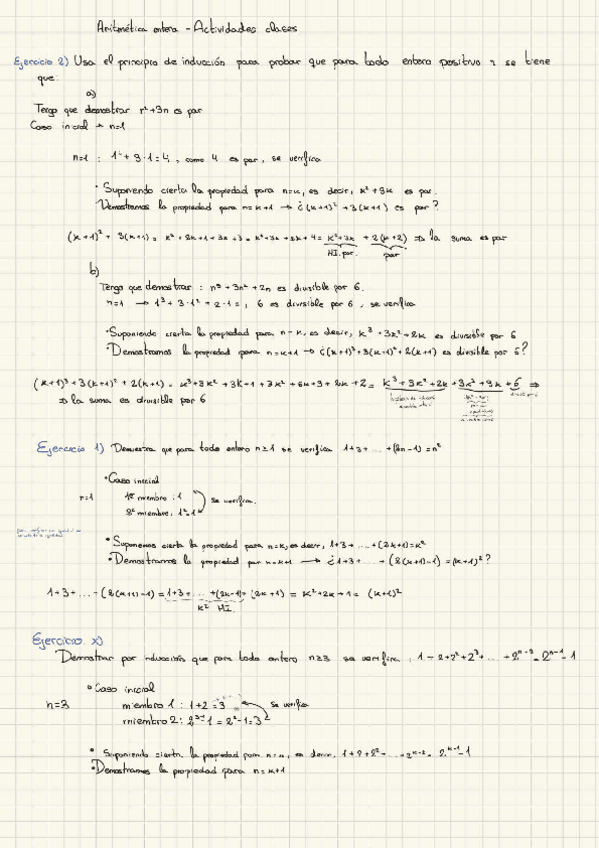 Aritmética entera - Actividades clases
Ejercicio 2) Usa el principio de inducción para probar que para todo entero positivo n se tiene
que:
a)
Tengo que demostrar n²+3n es par
Caso inicial → n=1
n=1 : 1²+3·1=4, como 4 es par, se verifica
• Suponiendo cierta la propiedad para n=k, es decir, k²+3k es par.
Demostramos la propiedad para n=k+1 → ¿(k+1)²+3(k+1) es par?
(k+1)² + 3(k+1) = k²+2k+1+3k+3 = k²+3k+2k+4 = k²+3k + 2(k+2) ⇒ la suma es par
HI. par. par
b)
Tengo que demostrar : n³+3n²+2n es divisible por 6.
n=1 → 1³+3·1²+2·1=, 6 es divisible por 6, se verifica
• Suponiendo cierta la propiedad para n=k, es decir, k³+3k²+2k es divisible por 6
• Demostramos la propiedad para n=k+1 → ¿(k+1)³+3(k+1)²+2(k+1) es divisible por 6?
(k+1)³+3(k+1)²+2(k+1) = k³+3k²+3k+1+3k²+6k+3+2k+2 = k³+3k²+2k+3k²+9k+6 ⇒
⇒ la suma es divisible por 6
Ejercicio 1) Demuestra que para todo entero n≥1 se verifica 1+3+...+(2n-1)=n²
• Caso inicial
n=1 1er miembro : 1
2º miembro: 1²=1 se verifica.
• Suponemos cierta la propiedad para n=k, es decir, 1+3+...+(2k+1)=k²
• Demostramos la propiedad par n=k+1 → ¿1+3+...+(2(k+1)-1)=(k+1)²?
1+3+...-(2(k+1)-1) = 1+3+...+(2k-1)+(2k+1) = k²+2k+1 = (k+1)²
k² HI.
Ejercicio x)
Demostrar por inducción que para todo entero n≥3 se verifica : 1+2+2²+2³+...+2ⁿ⁻²=2ⁿ⁻¹-1
• Caso inicial
n=3 miembro 1 : 1+2=3 se verifica
miembro 2: 2³⁻¹-1=2²-1=3
• Suponiendo cierta la propiedad para n=k, es decir, 1+2+2²+...+2ᵏ⁻²=2ᵏ⁻¹-1
• Demostramos la propiedad para n=k+1